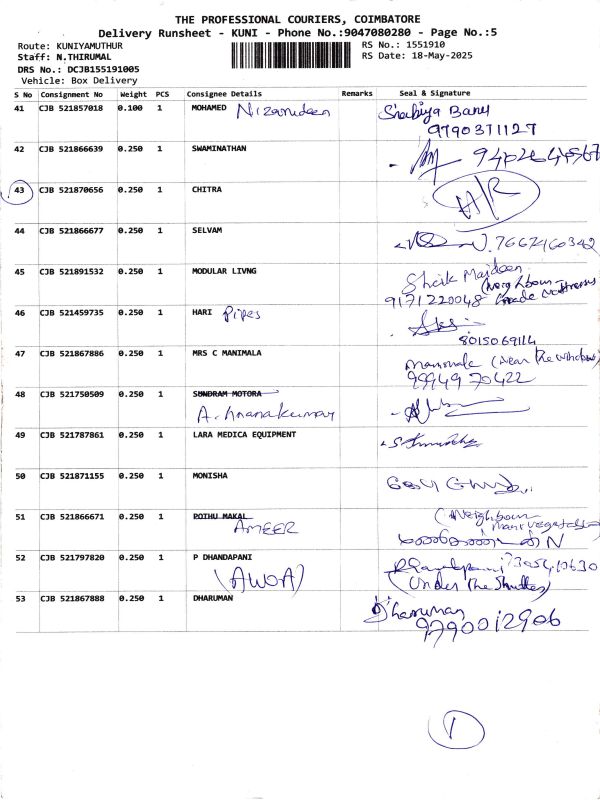 THE PROFESSIONAL COURIERS, COIMBATORE
Delivery Runsheet - KUNI - Phone No.:9047080280 - Page No.:5
Route: KUNIYAMUTHUR
RS No.: 1551910
Staff: N.THIRUMAL
RS Date: 18-May-2025
DRS No.: DCJB155191005
Vehicle: Box Delivery
S No Consignment No Weight PCS Consignee Details Remarks Seal & Signature
41 CJB 521857018 0.100 1 MOHAMED Nizamudeen Shabiya Banu
9790371127
42 CJB 521866639 0.250 1 SWAMINATHAN
43 CJB 521870656 0.250 1 CHITRA H/R
44 CJB 521866677 0.250 1 SELVAM
45 CJB 521891532 0.250 1 MODULAR LIVNG Sheik Maideen
(Neighbour
9171220048
46 CJB 521459735 0.250 1 HARI Pipes
8015069114
47 CJB 521867886 0.250 1 MRS C MANIMALA (Near the window)
99949 70422
48 CJB 521750509 0.250 1 SUNDRAM MOTORA
A. Gnanakumar
49 CJB 521787861 0.250 1 LARA MEDICA EQUIPMENT
50 CJB 521871155 0.250 1 MONISHA
51 CJB 521866671 0.250 1 POTHU MAKAL (Neighbour
AMEER
52 CJB 521797820 0.250 1 P DHANDAPANI
(AWOA) (Under the Shutter)
53 CJB 521867888 0.250 1 DHARUMAN Dharuman
9790012906
1